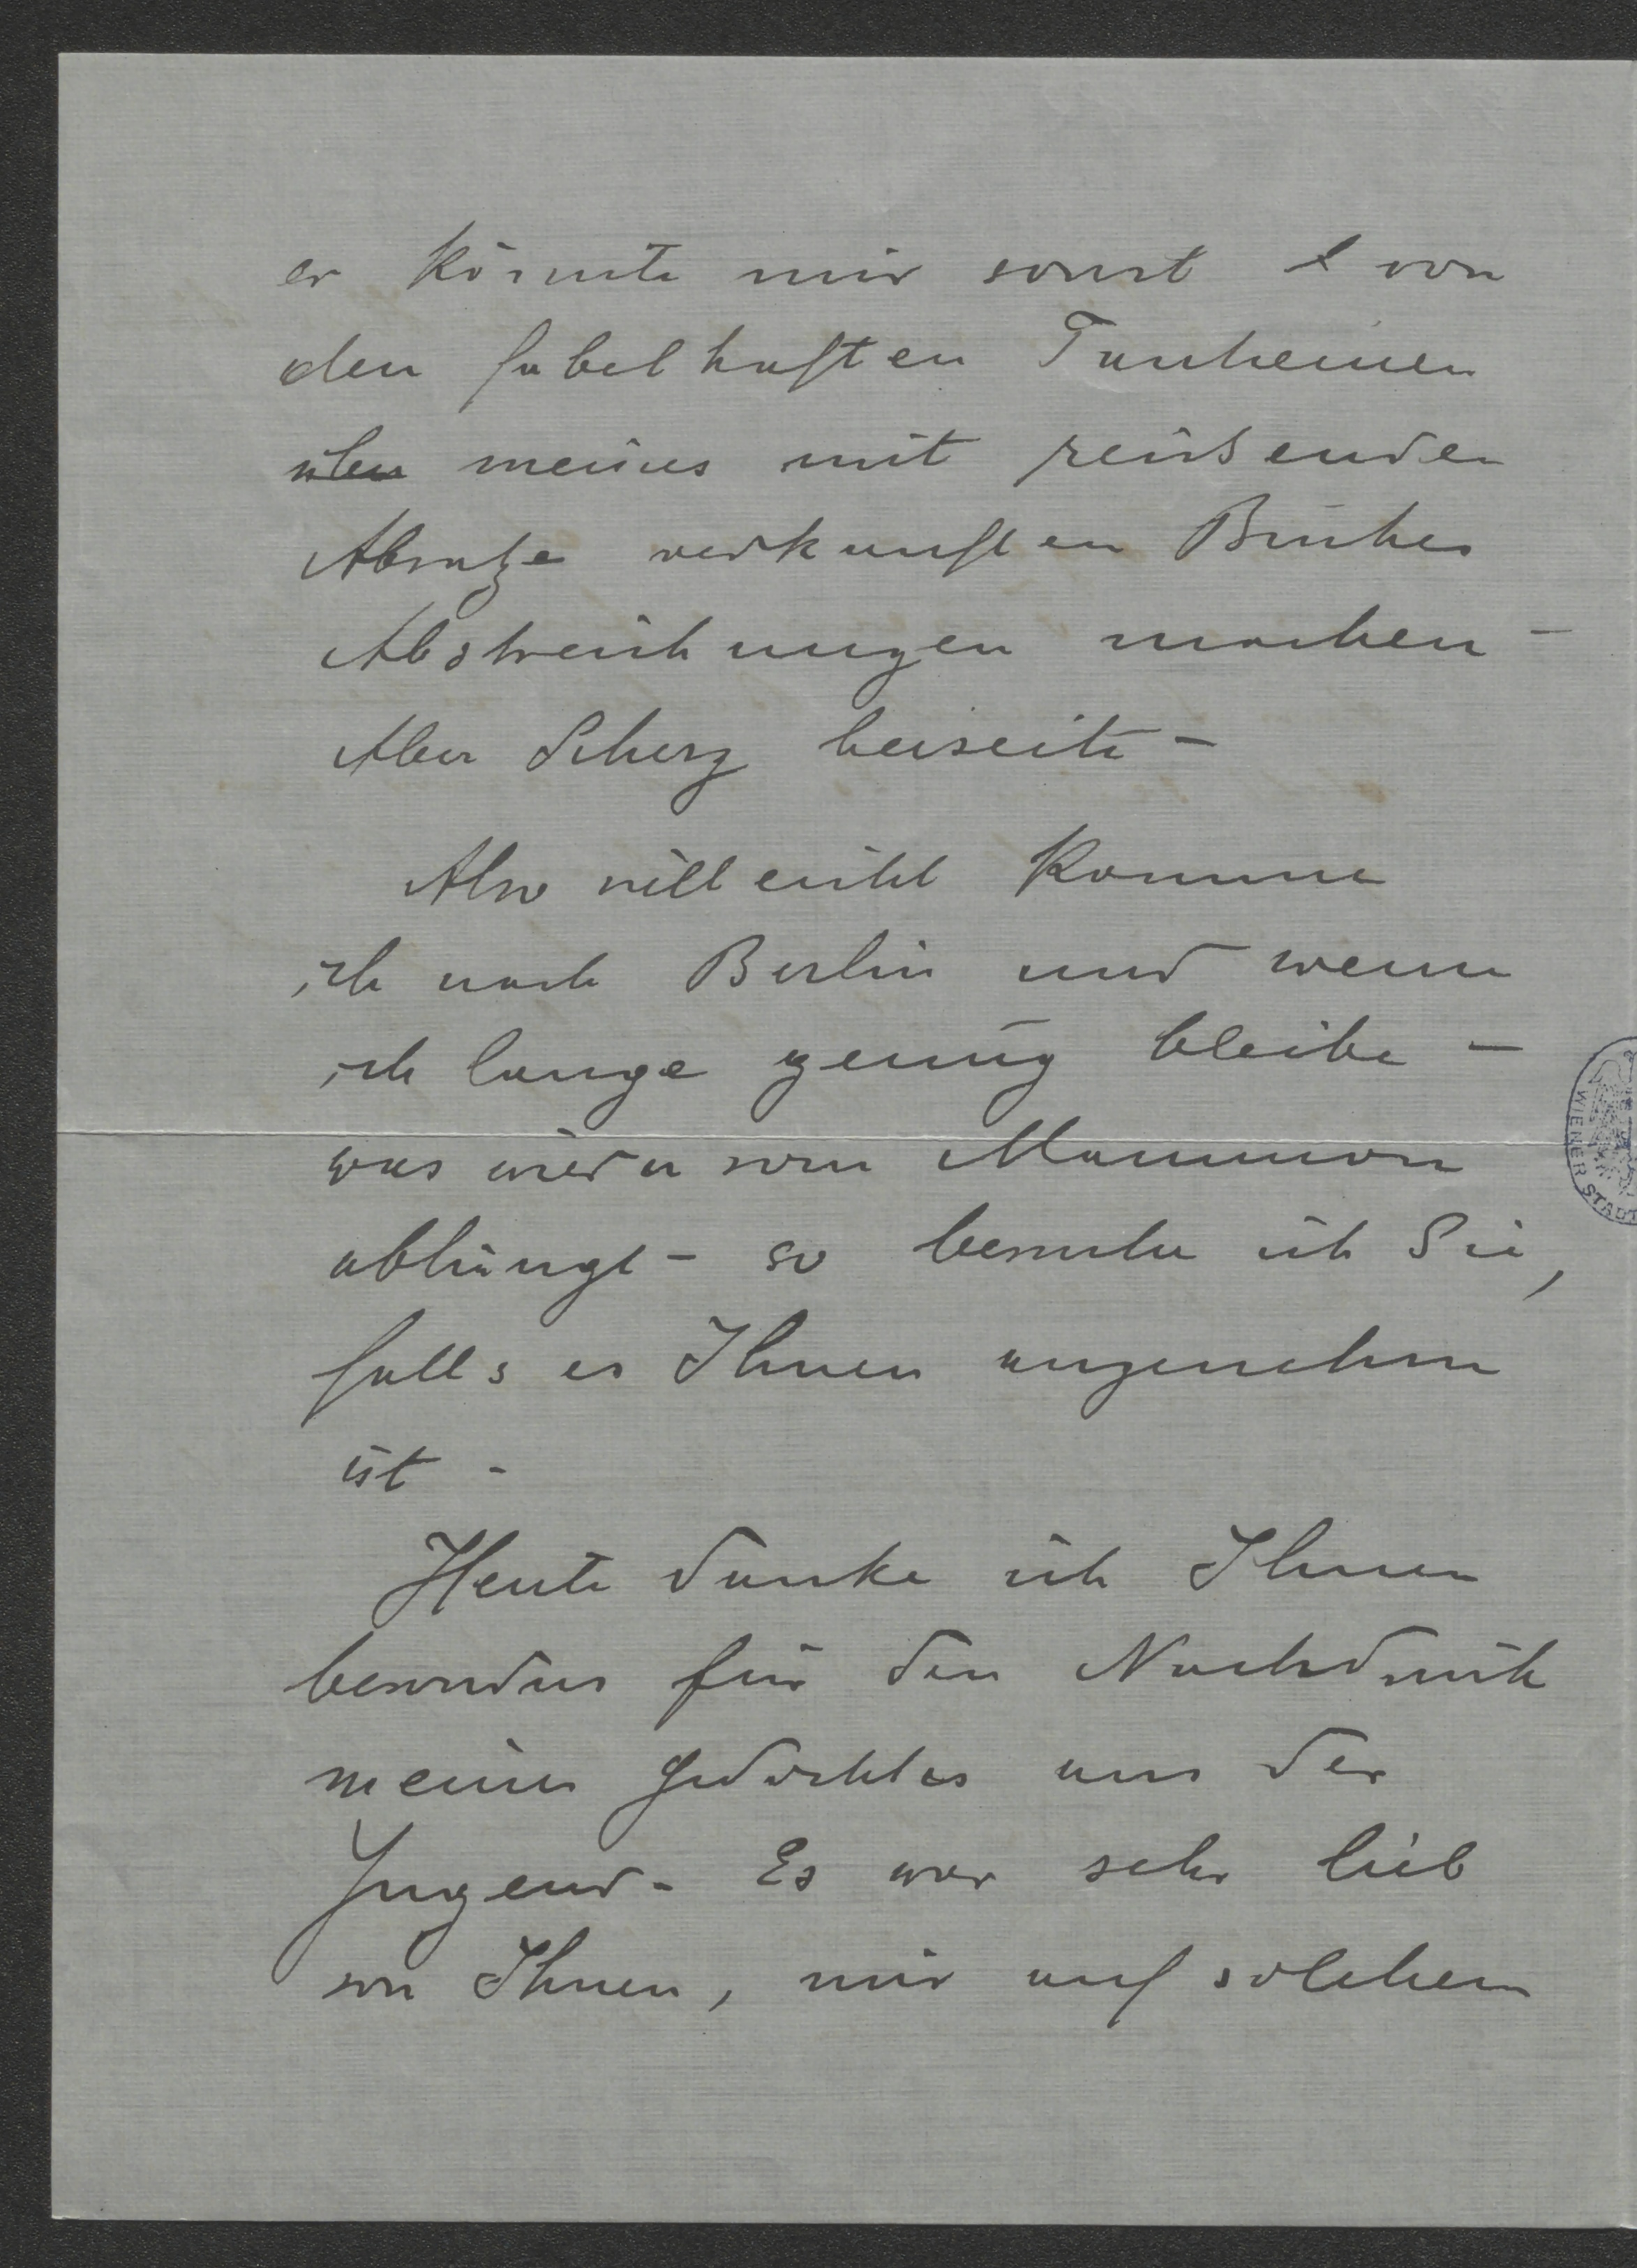 er könnte mir sonst von
den fabelhaften Tantiemen
über meines mit reissendem
Absatze verkauften Buches
Abstreichungen machen –
Aber Scherz beiseite –
Also vielleicht komme
ich nach Berlin und wenn
ich lange genug bleibe –
was wieder vom Mammon
abhängt – so besuche ich Sie,
falls es Ihnen angenehm
ist –
Heute danke ich Ihnen
besonders für den Nachdruck
meines Gedichtes aus der
Jugend – Es war sehr lieb
von Ihnen, mir auf solchem
WIENER STADT